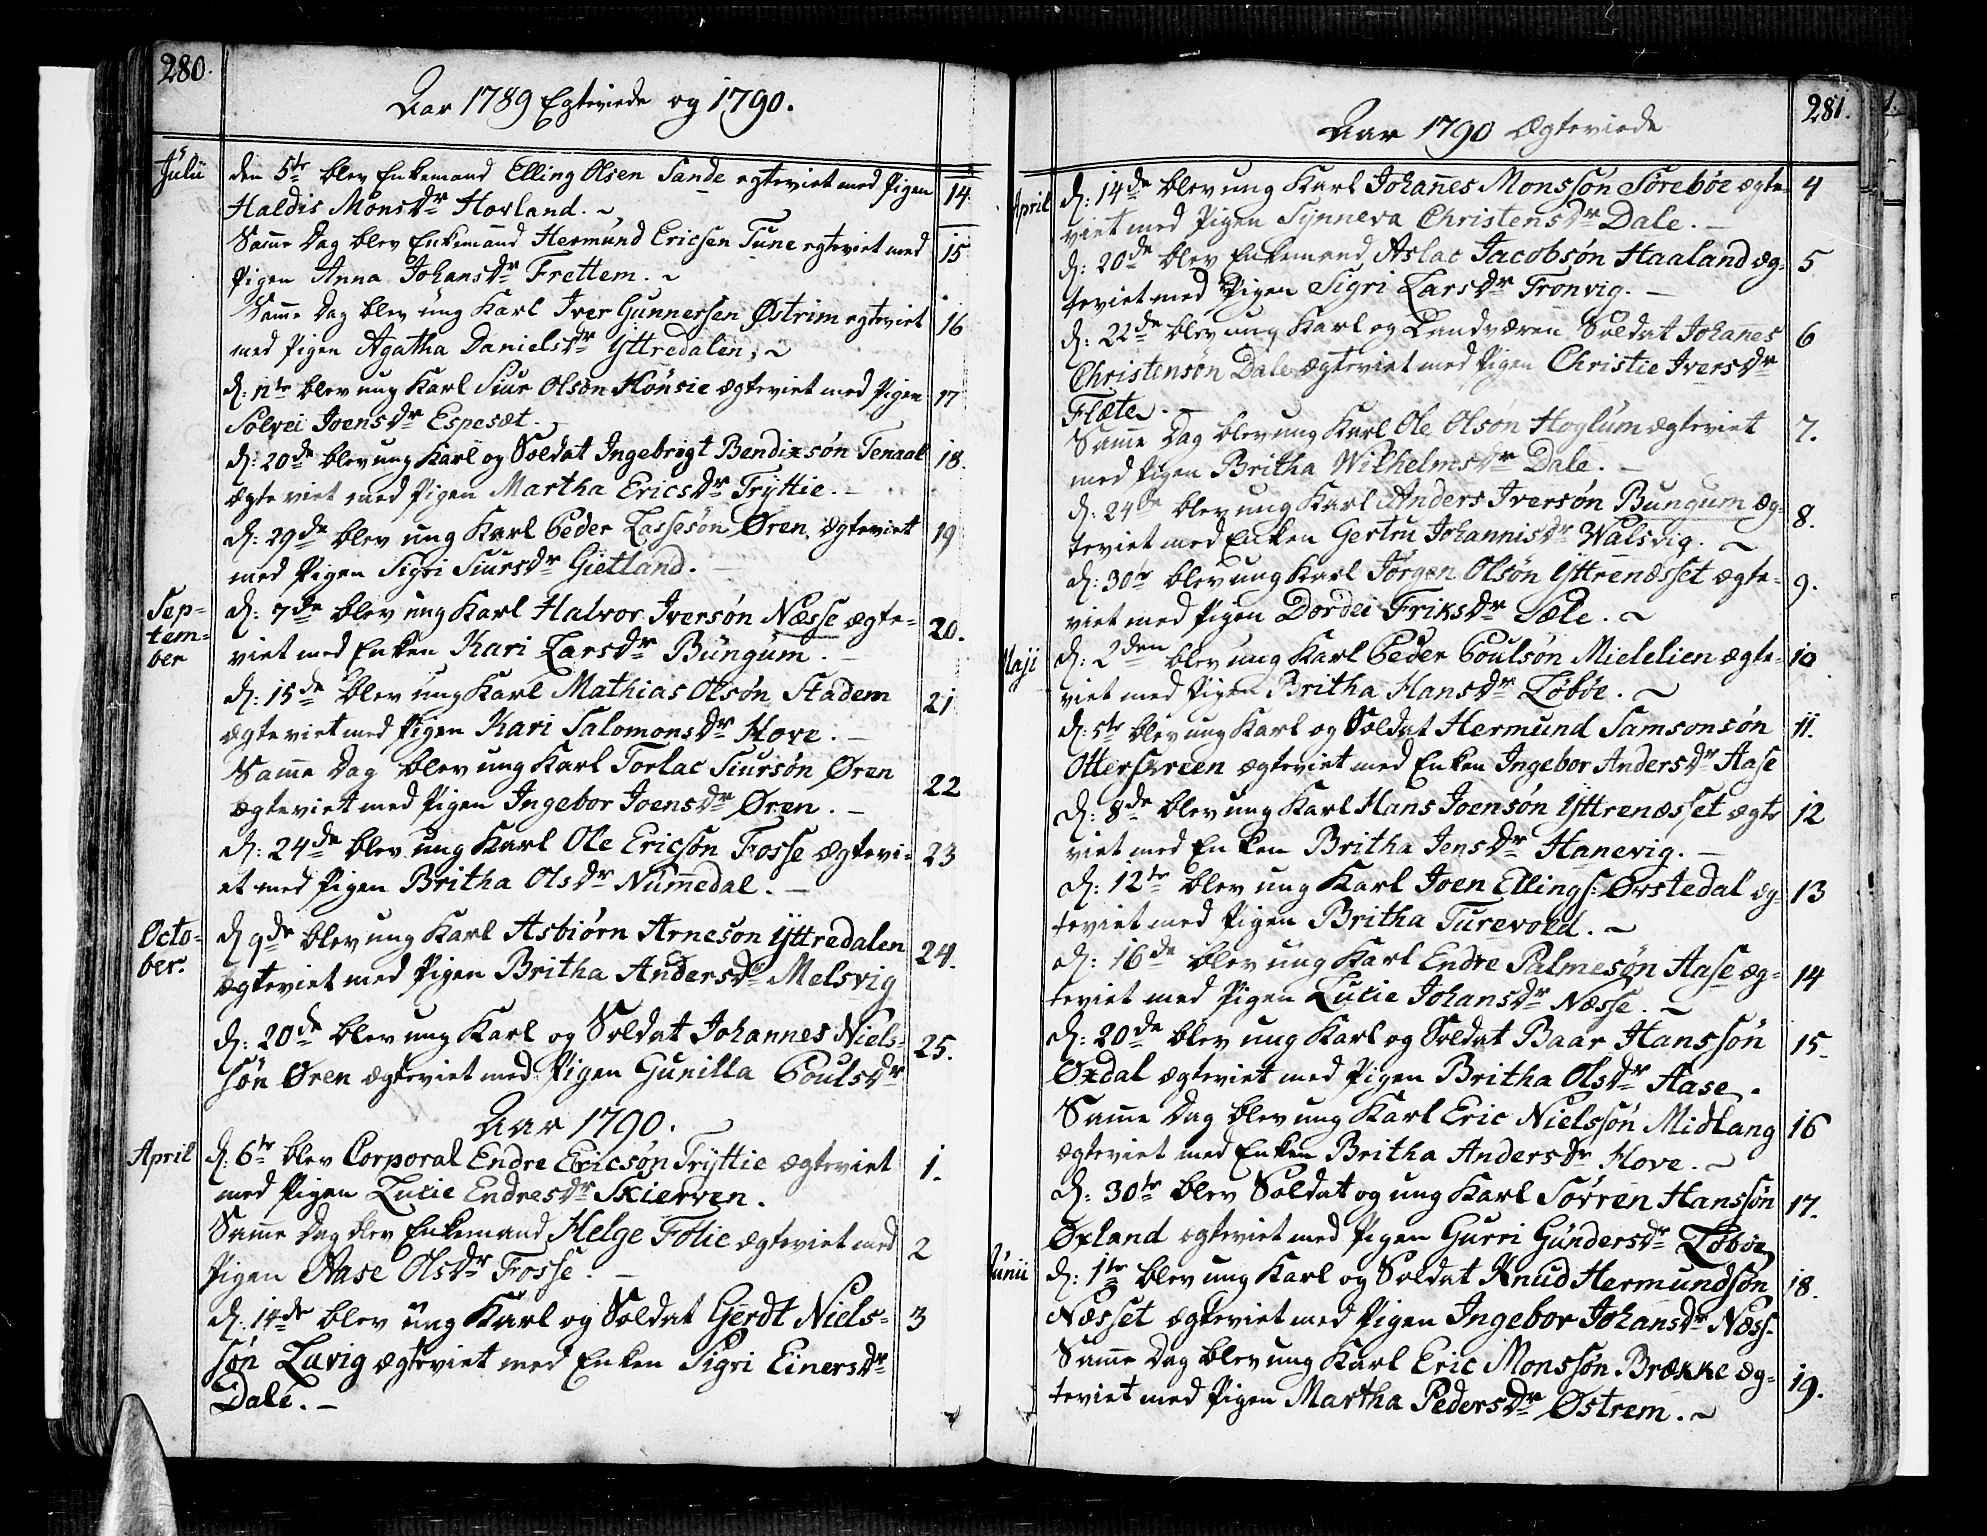 280.
Aar 1789 Egteviede og 1790.
Julii
den 5te blev Enkemand Elling Olsen Sande egteviet med Pigen 14
Haldis MonsDr Hovland. ~
Samme Dag blev Enkemand Hermund Ericsen Tune egteviet med 15
Pigen Anna JohansDr Frettem. ~
Samme Dag blev ung Karl Iver Gunnersen Østrim egteviet 16
med Pigen Agatha DanielsDr Yttredalen. ~
d: 12te blev ung Karl Siur Olsøn Hønsie ægteviet med Pigen 17
Solvei JoensDr Espesæt.
d: 20de blev ung Karl og Soldat Ingebrigt Bendixsøn Tenaal 18.
ægteviet med Pigen Martha EricsDr Tryttie. -
d: 29de blev ung Karl Peder Lassesøn Øren ægteviet 19
med Pigen Sigri SiursDr Gietland. -
Sep-
tem-
ber
d: 7de blev ung Karl Halvor Iversøn Næsse ægte- 20.
viet med Enken Kari LarsDr Bungum. -
d: 15de blev ung Karl Mathias Olsøn Stadem 21
ægteviet med Pigen Kari SalomonsDr Hove. -
Samme Dag blev ung Karl Torlac Siursøn Øren 22
ægteviet med Pigen Ingebor JoensDr Øren. -
d: 24de blev ung Karl Ole Ericsøn Fosse ægtevi- 23
et med Pigen Britha OlsDr Nummedal. -
Octo-
ber.
d 9de blev ung Karl Asbiørn Arneson Yttredalen 24.
ægteviet med Pigen Britha AndersDr Melsvig
d: 20de blev ung Karl og Soldat Johannes Niels- 25.
søn Øren ægteviet med Pigen Gunilla PoulsDr
Aar 1790.
April
d: 6te blev Corporal Endre Ericsøn Tryttie ægteviet 1.
med Pigen Lucie EndresDr Skierven.
Samme Dag blev Enkemand Helge Folie ægteviet med 2
Pigen Aase OlsDr Fosse. -
d: 14de blev ung Karl og Soldat Gerdt Niels- 3
søn Lavig ægteviet med Enken Sigri EinersDr
Dale. -
281.
Aar 1790 Ægteviede
April
d: 14de blev ung Karl Johannes Monssøn Sørebøe ægte- 4
viet med Pigen Synneva ChristensDr Dale. -
d: 20de blev Enkemand Aslac Jacobsøn Haaland æg- 5
teviet med Pigen Sigri LarsDr Tronvig. -
d: 22de blev ung Karl og Landværen Soldat Johanes 6
Christensøn Dale ægteviet med Pigen Christie IversDr
Flæte. -
Samme Dag blev ung Karl Ole Olson Hoylum ægteviet 7.
med Pigen Britha WilhelmsDr Dale. -
d: 24de blev ung Karl Anders Iversøn Bungum æg- 8.
teviet med Enken Gertru JohannisDr Walsvig. ~
d: 30te blev ung Karl Jørgen Olsøn Yttrenæsset ægte- 9.
viet med Pigen Dordei FriksDr Sæle. ~
Maji
d: 2den blev ung Karl Peder Poulsøn Mielelien ægte- 10
viet med Pigen Britha HansDr Løbøe. ~
d: 5te blev ung Karl og Soldat Hermund Samsonsøn 11.
Otterscreen ægteviet med Enken Ingebor AndersDr Aase
d: 8de blev ung Karl Hans Joensøn Yttrenæsset ægte 12
viet med Enken Britha JensDr Hanevig. -
d: 12te blev ung Karl Joen Ellings: Ørstedal æg- 13
teviet med Pigen Britha Turevold. ~
d: 16de blev ung Karl Endre Palmesøn Aase æg- 14
teviet med Pigen Lucie JohansDr Næsse. ~
d: 20de blev ung Karl og Soldat Baar Hanssøn 15.
Oxdal ægteviet med Pigen Britha OlsDr Aase.
Samme Dag blev ung Karl Eric Nielssøn Midlang 16
ægteviet med Enken Britha AndersDr Hove. ~
d: 30te blev Soldat og ung Karl Sørren Hanssøn 17.
Øxland ægteviet med Pigen Gurri GundersDr Løbøe
Junii
d: 1te blev ung Karl og Soldat Knud Hermundsøn 18.
Næsset ægteviet med Pigen Ingebor JohansDr Næss-
Samme Dag blev ung Karl Eric Monssøn Brække æg- 19.
teviet med Pigen Martha PedersDr Østrem. ~